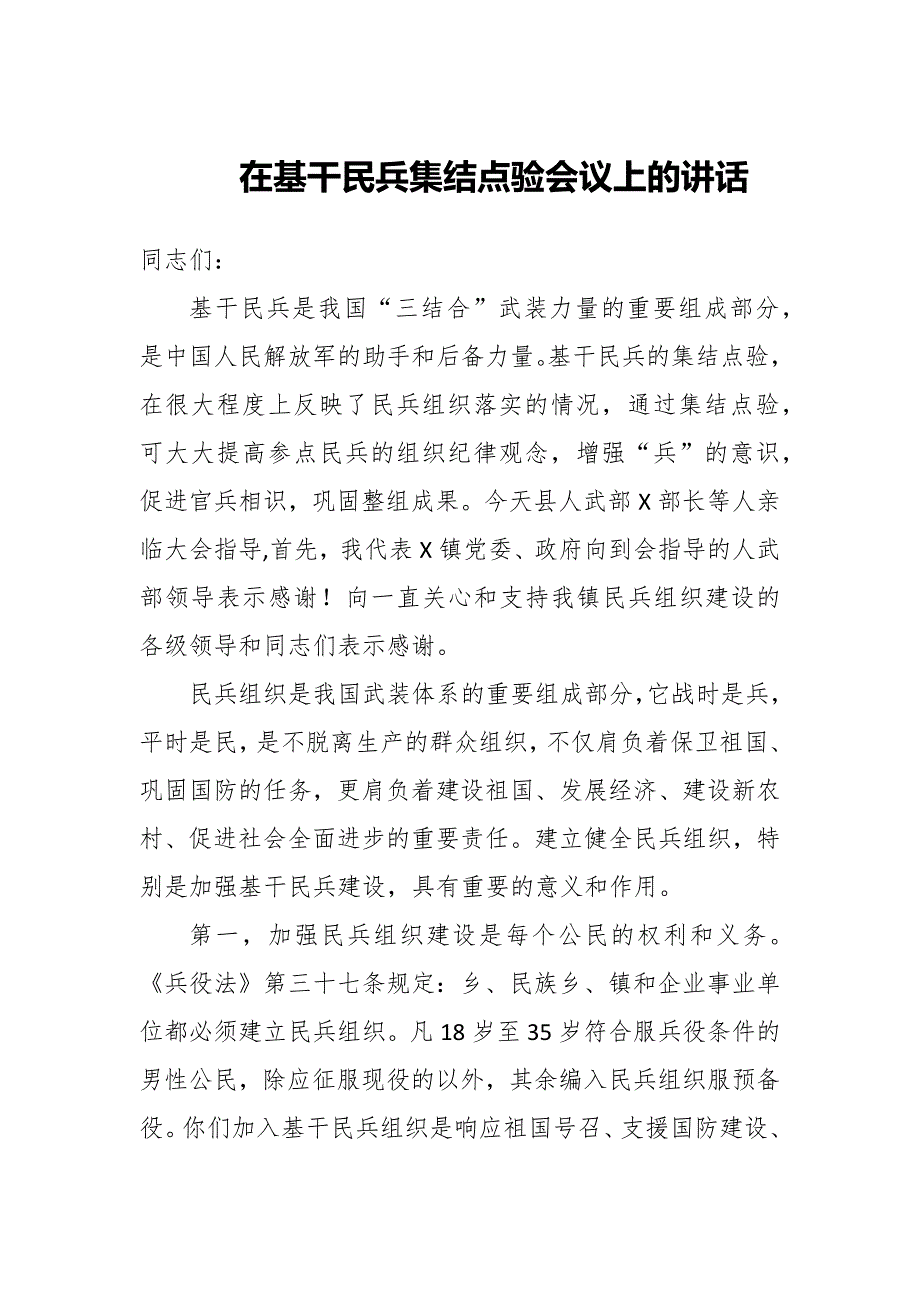 在基干民兵集结点验会议上的讲话
同志们：
基干民兵是我国“三结合”武装力量的重要组成部分，
是中国人民解放军的助手和后备力量。基干民兵的集结点验，
在很大程度上反映了民兵组织落实的情况，通过集结点验，
可大大提高参点民兵的组织纪律观念，增强“兵”的意识，
促进官兵相识，巩固整组成果。今天县人武部 X 部长等人亲
临大会指导,首先，我代表 X 镇党委、政府向到会指导的人武
部领导表示感谢！向一直关心和支持我镇民兵组织建设的
各级领导和同志们表示感谢。
民兵组织是我国武装体系的重要组成部分，它战时是兵，
平时是民，是不脱离生产的群众组织，不仅肩负着保卫祖国、
巩固国防的任务，更肩负着建设祖国、发展经济、建设新农
村、促进社会全面进步的重要责任。建立健全民兵组织，特
别是加强基干民兵建设，具有重要的意义和作用。
第一，加强民兵组织建设是每个公民的权利和义务。
《兵役法》第三十七条规定：乡、民族乡、镇和企业事业单
位都必须建立民兵组织。凡 18 岁至 35 岁符合服兵役条件的
男性公民，除应征服现役的以外，其余编入民兵组织服预备
役。你们加入基干民兵组织是响应祖国号召、支援国防建设、